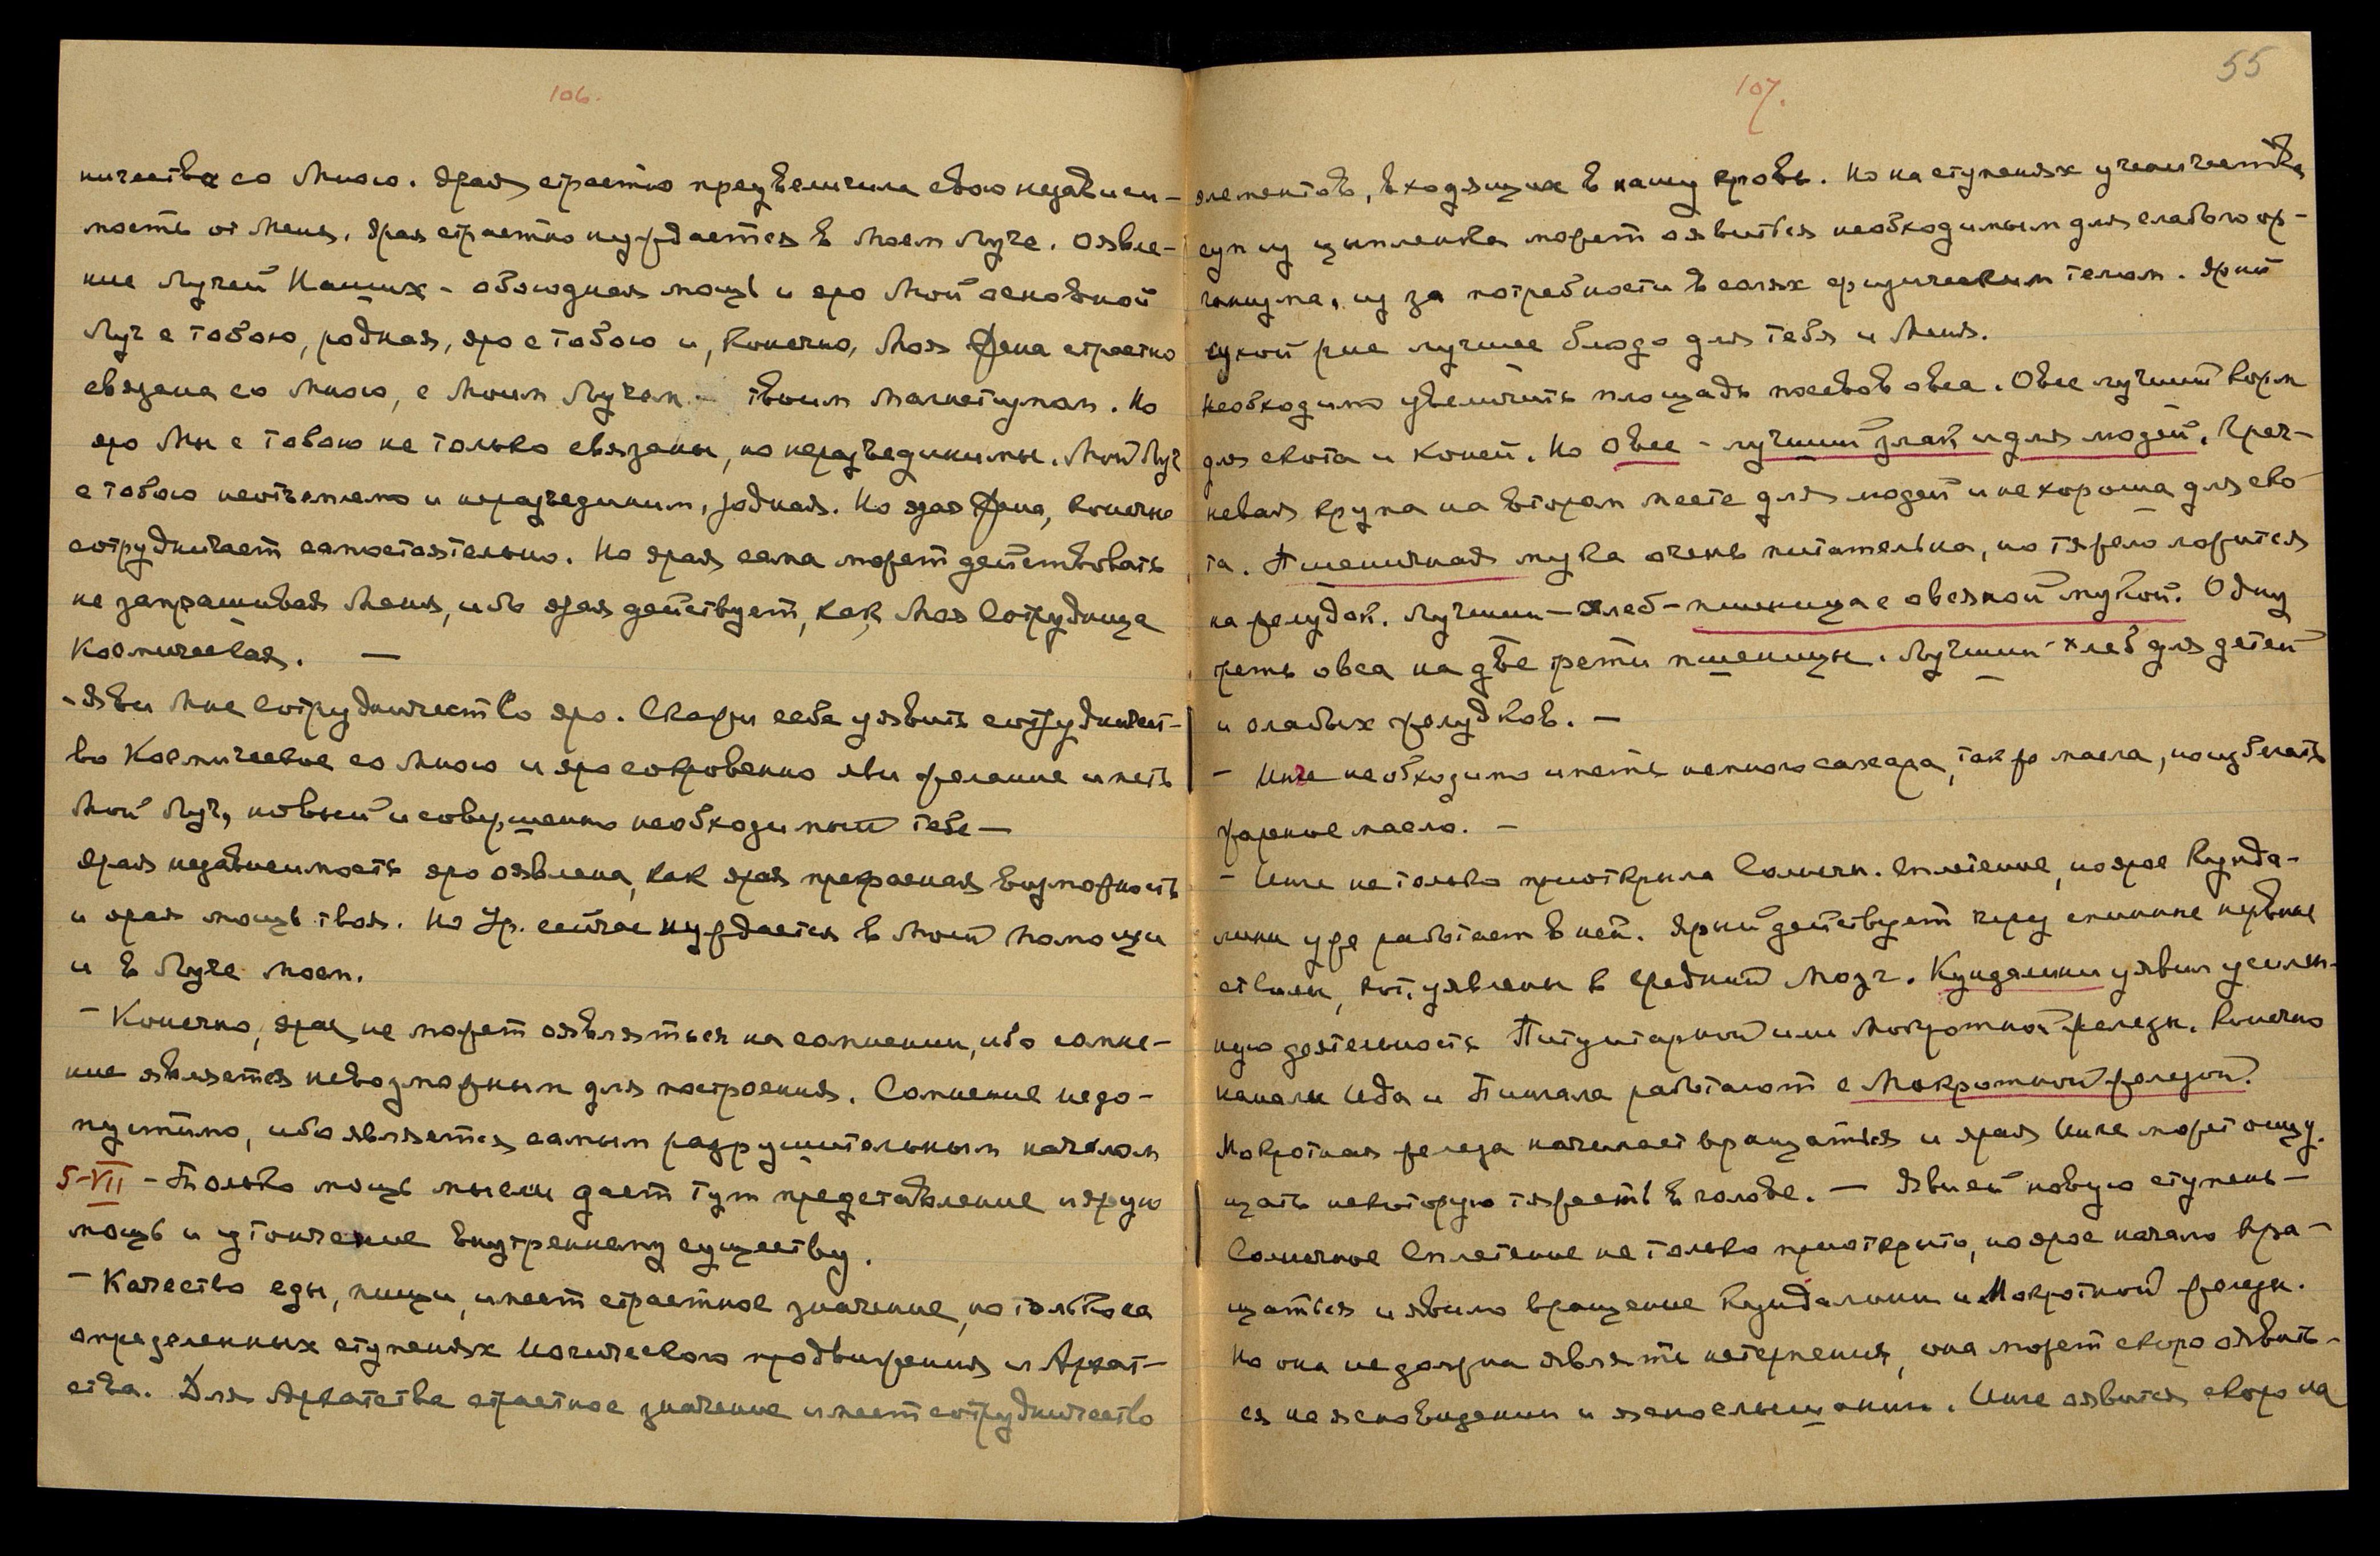 106.
ничества со Мною. Ярая страстно преувеличила свою независи-
мость от Меня. Ярая страстно нуждается в Моем Луче. Оявле-
ние Лучей Наших - обоюдная мощь и яро Мой основной
Луч с тобою, родная, яро с тобою и, конечно, Моя Жена страстно
связана со Мною, с Моим Лучем - твоим магнетизмом. Но
яро Мы с тобою не только связаны, но неразъединимы. Мой Луч
с тобою неотъемлемо и неразъединим, родная. Но ярая Жена, конечно
сотрудничает самостоятельно. Но ярая сама может действовать
не запрашивая Меня, ибо ярая действует, как Моя Сотрудница
Космическая. —
- Яви Мне Сотрудничество яро. Скажи себе уявить сотрудничест-
во Космическое со Мною и яро сокровенно яви желание иметь
Мой Луч, новый и совершенно необходимый тебе —
Ярая независимость яро оявлена, как ярая прекрасная возможность
и ярая мощь твоя. Но Ур. сейчас нуждается в Моей помощи
и в Луче моем.
- Конечно, ярая не может оявляться на сомнении, ибо сомне-
ние является невозможным для построения. Сомнение недо-
пустимо, ибо является самым разрушительным началом
5-VII - Только мощь мысли дает тут представление и ярую
мощь и утончение внутреннему существу.
- Качество еды, пищи, имеет страстное значение, но только на
определенных ступенях Иогического продвижения и Архат-
ства. Для Архатства страстное значение имеет сотрудничество
55
107.
элементов, входящих в нашу кровь. Но на ступенях ученичества
суп из цыпленка может оявиться необходимым для слабого ор-
ганизма, из за потребности в солях физическим телом. Ярый
сухой рис лучшее блюдо для тебя и Меня.
Необходимо увеличить площадь посевов овса. Овес лучший корм
для скота и коней. Но овес - лучший злак и для людей. Греч-
невая крупа на втором месте для людей и не хороша для ско-
та. Пшеничная мука очень питательна, но тяжело ложится
на желудок. Лучший - хлеб - пшеница с овсяной мукой. Одну
треть овса на две трети пшеницы. Лучший хлеб для детей
и слабых желудков. —
- Инге необходимо иметь немного сахара, так же масла, но избегать
жареное масло. —
- Инге не только приоткрыла Солнечн. сплетение, но ярое Кунда-
лини уже работает в ней. Ярый действует через спинные нервные
стволы, кот. уявлены в средний мозг. Кундалини уявил усилен-
ную деятельность Питуитарной или Мокротной железы. Конечно
каналы Ида и Пингала работают с Мокротной железой.
Мокротная железа начинает вращаться и ярая Инге может ощу-
щать некоторую тяжесть в голове. — Яви ей новую ступень —
Солнечное Сплетение не только приоткрыто, но ярое начало вра-
щаться и явило вращение Кундалини и Мокротной железы.
Но она не должна являть нетерпения, она может скоро оявить-
ся на ясновидении и яснослышании. Инге оявится скоро на